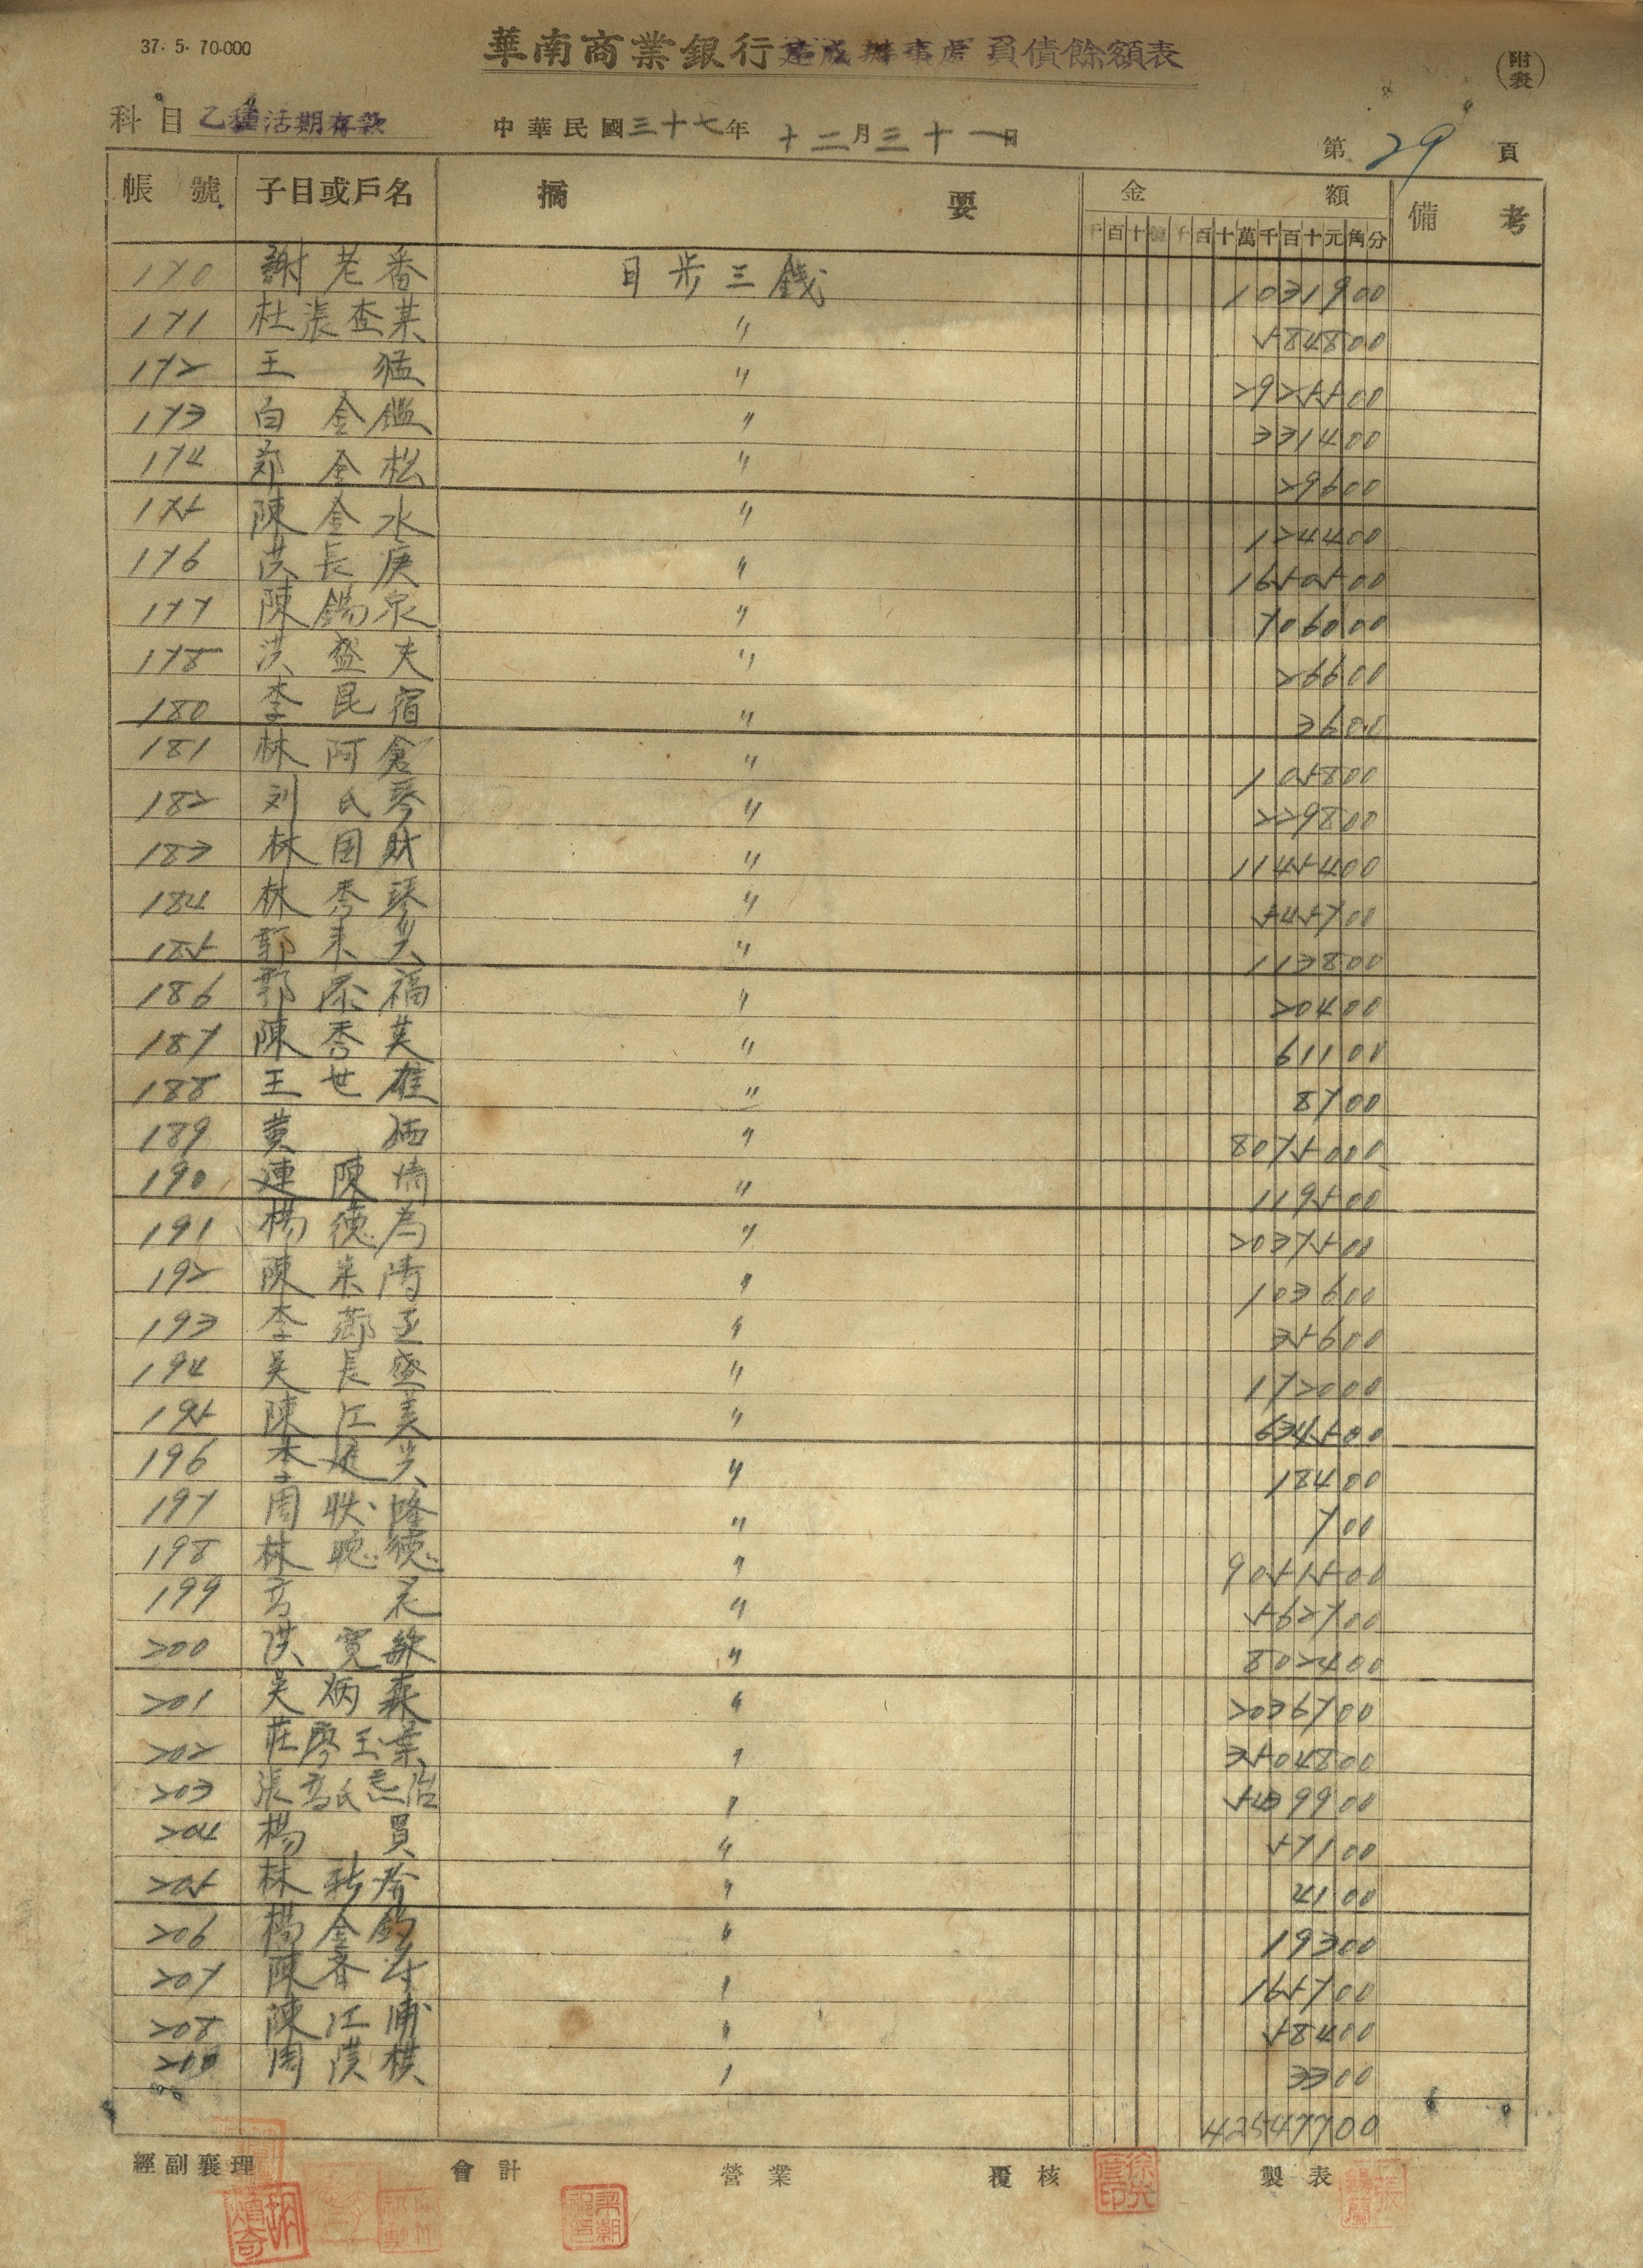 37. 5. 70.000
華南商業銀行建成辦事處負債餘額表
(附表)
科目 乙種活期存款 中華民國三十七年十二月三十一日 第29頁
帳號 子目或戶名 摘要 金額 備考
千百十億千百十萬千百十元角分
170 謝老番 日步三錢 1031900
171 杜張查某 〃 584800
172 王猛 〃 2925500
173 白金鑑 〃 331400
174 鄭金松 〃 29600
175 陳金水 〃 124400
176 洪長庚 〃 1650500
177 陳錫泉 〃 706000
178 洪盛夫 〃 26600
180 李昆宿 〃 3600
181 林阿倉 〃 105800
182 刘氏琴 〃 229800
183 林国財 〃 1145400
184 林秀琴 〃 545700
185 郭來兴 〃 113800
186 郭添福 〃 20400
187 陳秀英 〃 61100
188 王世雄 〃 8700
189 黄 〃 8075000
190 連陳 〃 119500
191 楊德為 〃 2037500
192 陳 〃 103600
193 李 〃 35600
194 吳長盛 〃 172000
195 陳江美 〃 634500
196 李延兴 〃 18400
197 周 隆 〃 700
198 林聰德 〃 9051500
199 高 〃 562700
200 洪寬 〃 802400
201 吳炳森 〃 2036700
202 莊廖玉葉 〃 3504800
203 張高氏 治 〃 5439900
204 楊買 〃 57100
205 林 〃 4100
206 楊金 〃 19300
207 陳春 〃 165700
208 陳江浦 〃 58400
209 周漢棋 〃 3300
42547700
經副襄理 會計 營業 覆核 製表